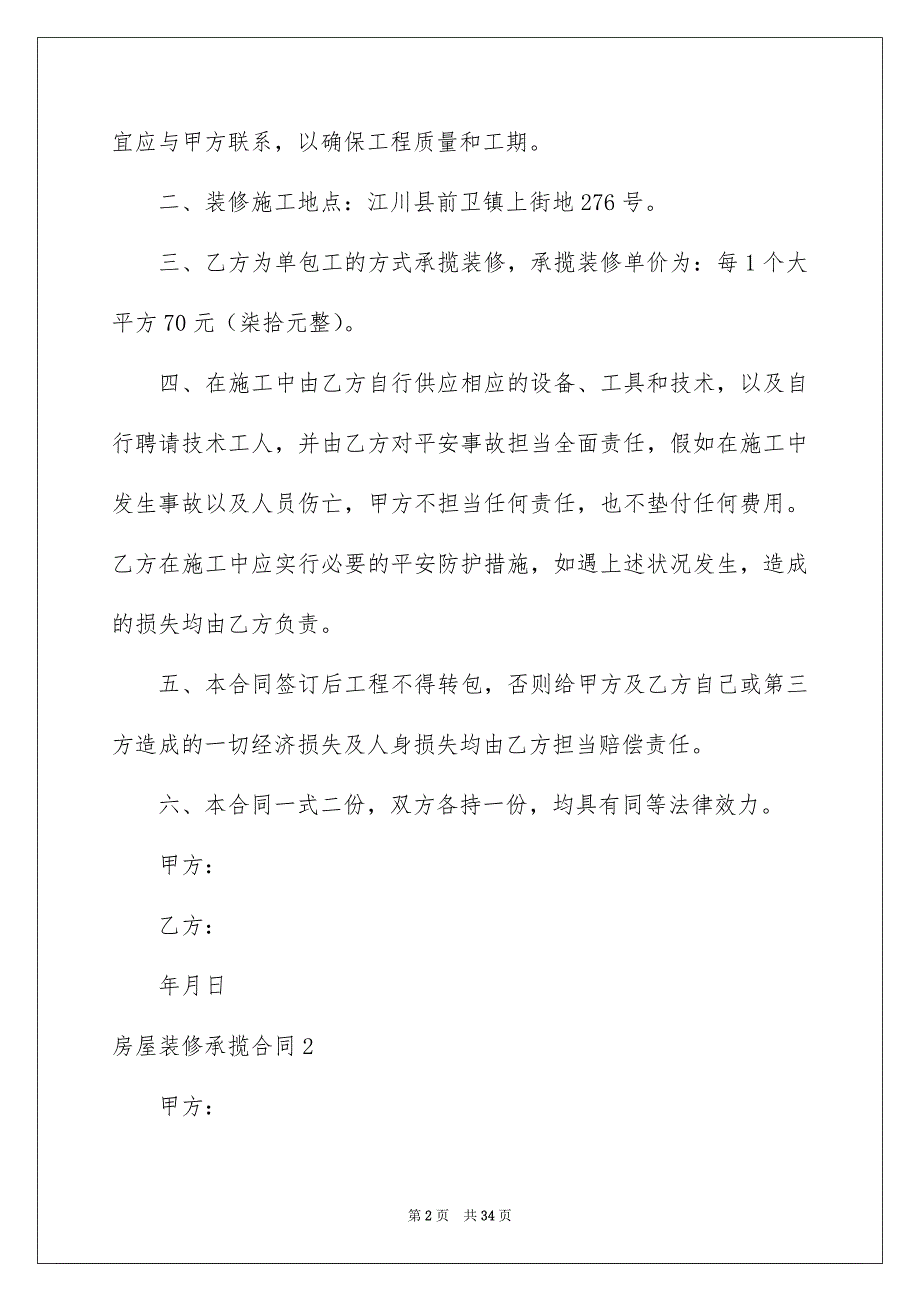 宜应与甲方联系，以确保工程质量和工期。
二、装修施工地点：江川县前卫镇上街地 276 号。
三、乙方为单包工的方式承揽装修，承揽装修单价为：每 1 个大
平方 70 元（柒拾元整）。
四、在施工中由乙方自行供应相应的设备、工具和技术，以及自
行聘请技术工人，并由乙方对平安事故担当全面责任，假如在施工中
发生事故以及人员伤亡，甲方不担当任何责任，也不垫付任何费用。
乙方在施工中应实行必要的平安防护措施，如遇上述状况发生，造成
的损失均由乙方负责。
五、本合同签订后工程不得转包，否则给甲方及乙方自己或第三
方造成的一切经济损失及人身损失均由乙方担当赔偿责任。
六、本合同一式二份，双方各持一份，均具有同等法律效力。
甲方：
乙方：
年月日
房屋装修承揽合同 2
甲方：
第 2 页 共 34 页